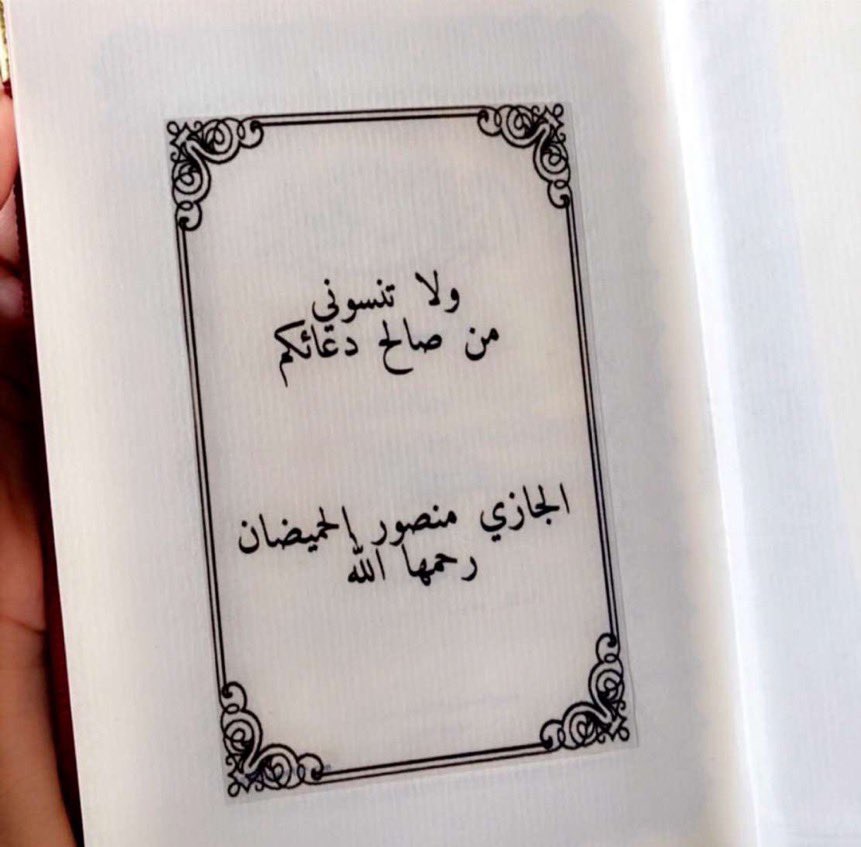 ولا تنسوني
من صالح دعائكم
الجازي منصور الحميضان
رحمها الله